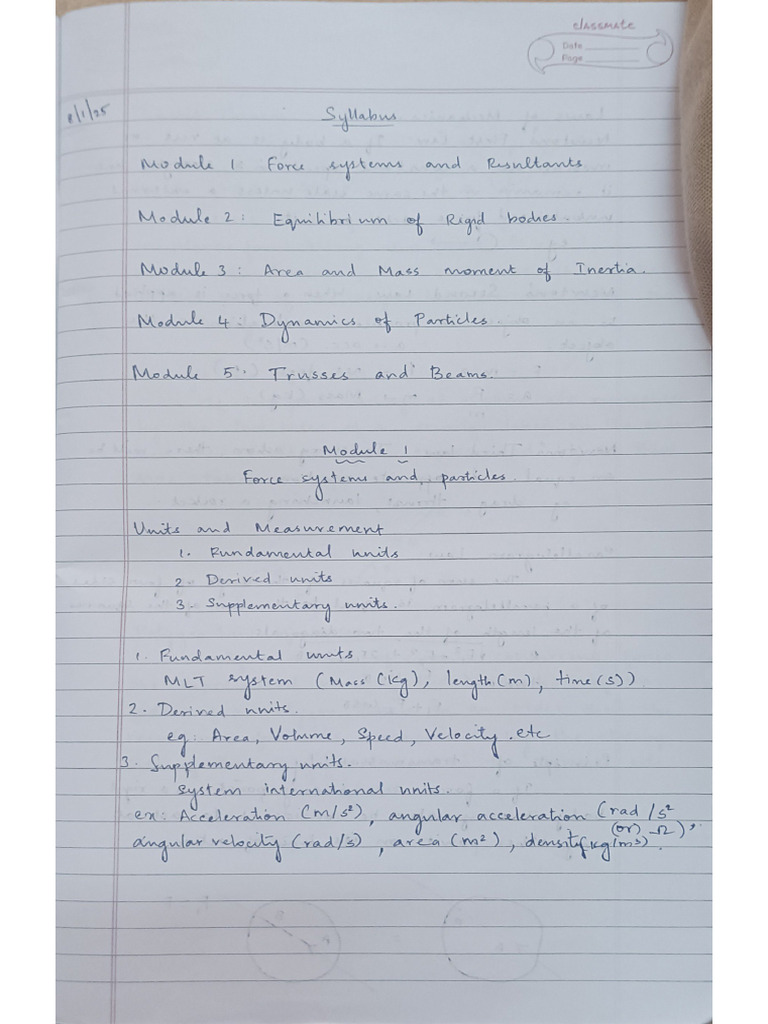 classmate
Date
Page
8/1/25
Syllabus
Module 1 Force systems and Resultants
Module 2: Equilibrium of Rigid bodies.
Module 3: Area and Mass moment of Inertia.
Module 4: Dynamics of Particles
Module 5. Trusses and Beams.
Module 1
Force systems and particles.
Units and Measurement
1. Fundamental units
2. Derived units
3. Supplementary units.
1. Fundamental units
MLT system (Mass (kg), length (m), time (s))
2. Derived units.
eg: Area, Volume, Speed, Velocity .etc
3. Supplementary units.
System international units.
ex: Acceleration (m/s²), angular acceleration (rad/s²
(or) Ω),
angular velocity (rad/s), area (m²), density kg/m³).